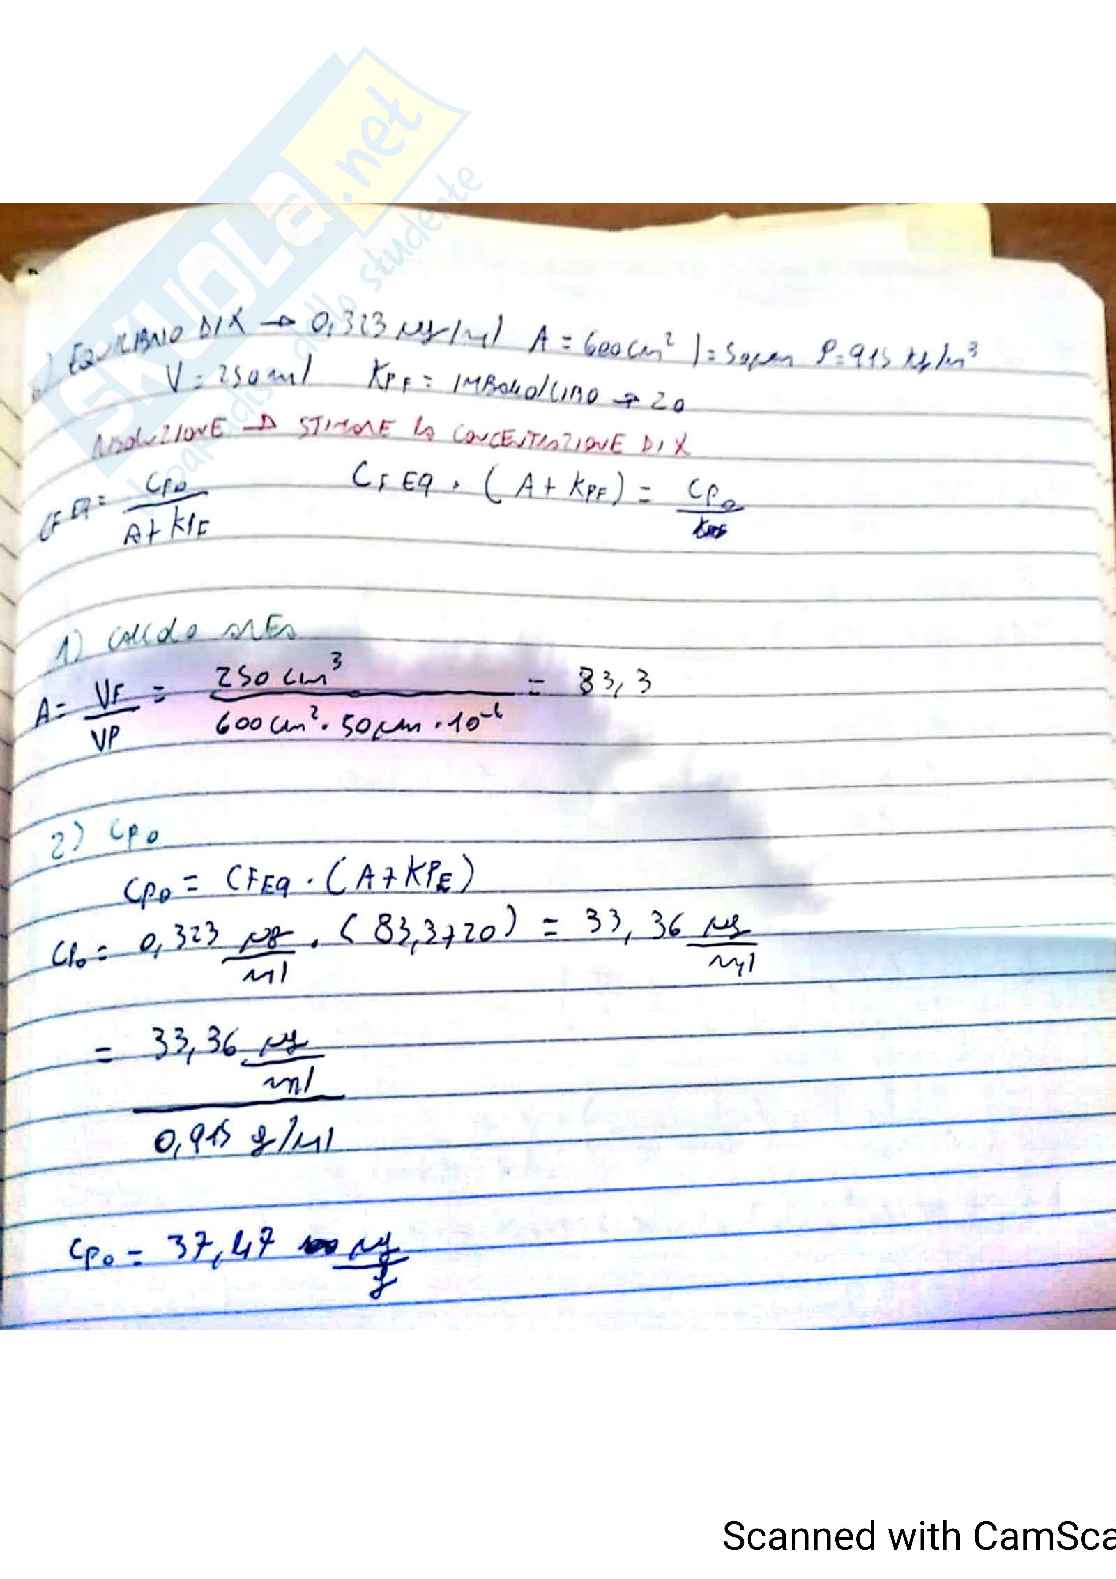 SKUOLA.net
) EQUILIBRIO DI X → 0,323 µg/ml A = 600 cm² l = 50µm ρ = 915 kg/m³
V = 250 ml KPF = IMBALLO/CIBO → 20
RISOLUZIONE → STIMARE LA CONCENTRAZIONE DI X
CF EQ = CP0 / A + KPF CF EQ · (A + KPF) = CP0
1) CALCOLO
A = VF / VP = 250 cm³ / 600 cm² · 50 µm · 10⁻⁶ = 83,3
2) CP0
CP0 = CF EQ · (A + KPE)
CP0 = 0,323 µg / ml · (83,3+20) = 33,36 µg / ml
= 33,36 µg / ml
0,915 g/ml
CP0 = 37,47 µg / g
Scanned with CamSca